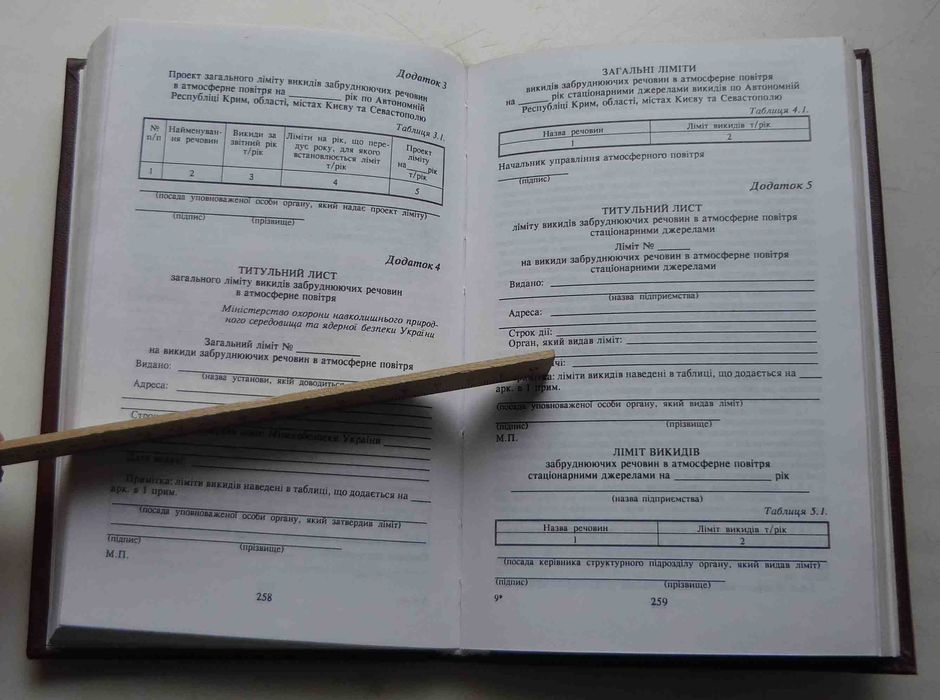 Додаток 3
Проект загального ліміту викидів забруднюючих речовин
в атмосферне повітря на рік по Автономній
Республіці Крим, області, містах Києву та Севастополю
Таблиця 3.1.
№ п/п Найменуван- ня речовин Викиди за звітний рік т/рік Ліміти на рік, що пере- дує року, для якого встановлюється ліміт т/рік Проект ліміту на рік т/рік
1 2 3 4 5
(посада уповноваженої особи органу, який надає проект ліміту)
(підпис) (прізвище)
Додаток 4
ТИТУЛЬНИЙ ЛИСТ
загального ліміту викидів забруднюючих речовин
в атмосферне повітря
Міністерство охорони навколишнього природ-
ного середовища та ядерної безпеки України
Загальний ліміт №
на викиди забруднюючих речовин в атмосферне повітря
Видано:
(назва установи, якій доводиться
Адреса:
Строк
Мінекобезпеки України
Примітка: ліміти викидів наведені в таблиці, що додається на
арк. в 1 прим.
(посада уповноваженої особи органу, який затвердив ліміт)
(підпис) (прізвище)
М.П.
258
ЗАГАЛЬНІ ЛІМІТИ
викидів забруднюючих речовин в атмосферне повітря
на рік стаціонарними джерелами викидів по Автономній
Республіці Крим, області, містах Києву та Севастополю
Таблиця 4.1.
Назва речовин Ліміт викидів т/рік
1 2
Начальник управління атмосферного повітря
(підпис)
Додаток 5
ТИТУЛЬНИЙ ЛИСТ
ліміту викидів забруднюючих речовин в атмосферне повітря
стаціонарними джерелами
Ліміт №
на викиди забруднюючих речовин в атмосферне повітря
стаціонарними джерелами
Видано:
(назва підприємства)
Адреса:
Строк дії:
Орган, який видав ліміт:
ліміти викидів наведені в таблиці, що додається на
арк. в 1 прим.
(посада уповноваженої особи органу, який видав ліміт)
(підпис) (прізвище)
М.П.
ЛІМІТ ВИКИДІВ
забруднюючих речовин в атмосферне повітря
стаціонарними джерелами на рік
(назва підприємства)
Таблиця 5.1.
Назва речовин Ліміт викидів т/рік
1 2
(посада керівника структурного підрозділу органу, який видав ліміт)
(підпис) (прізвище)
9* 259